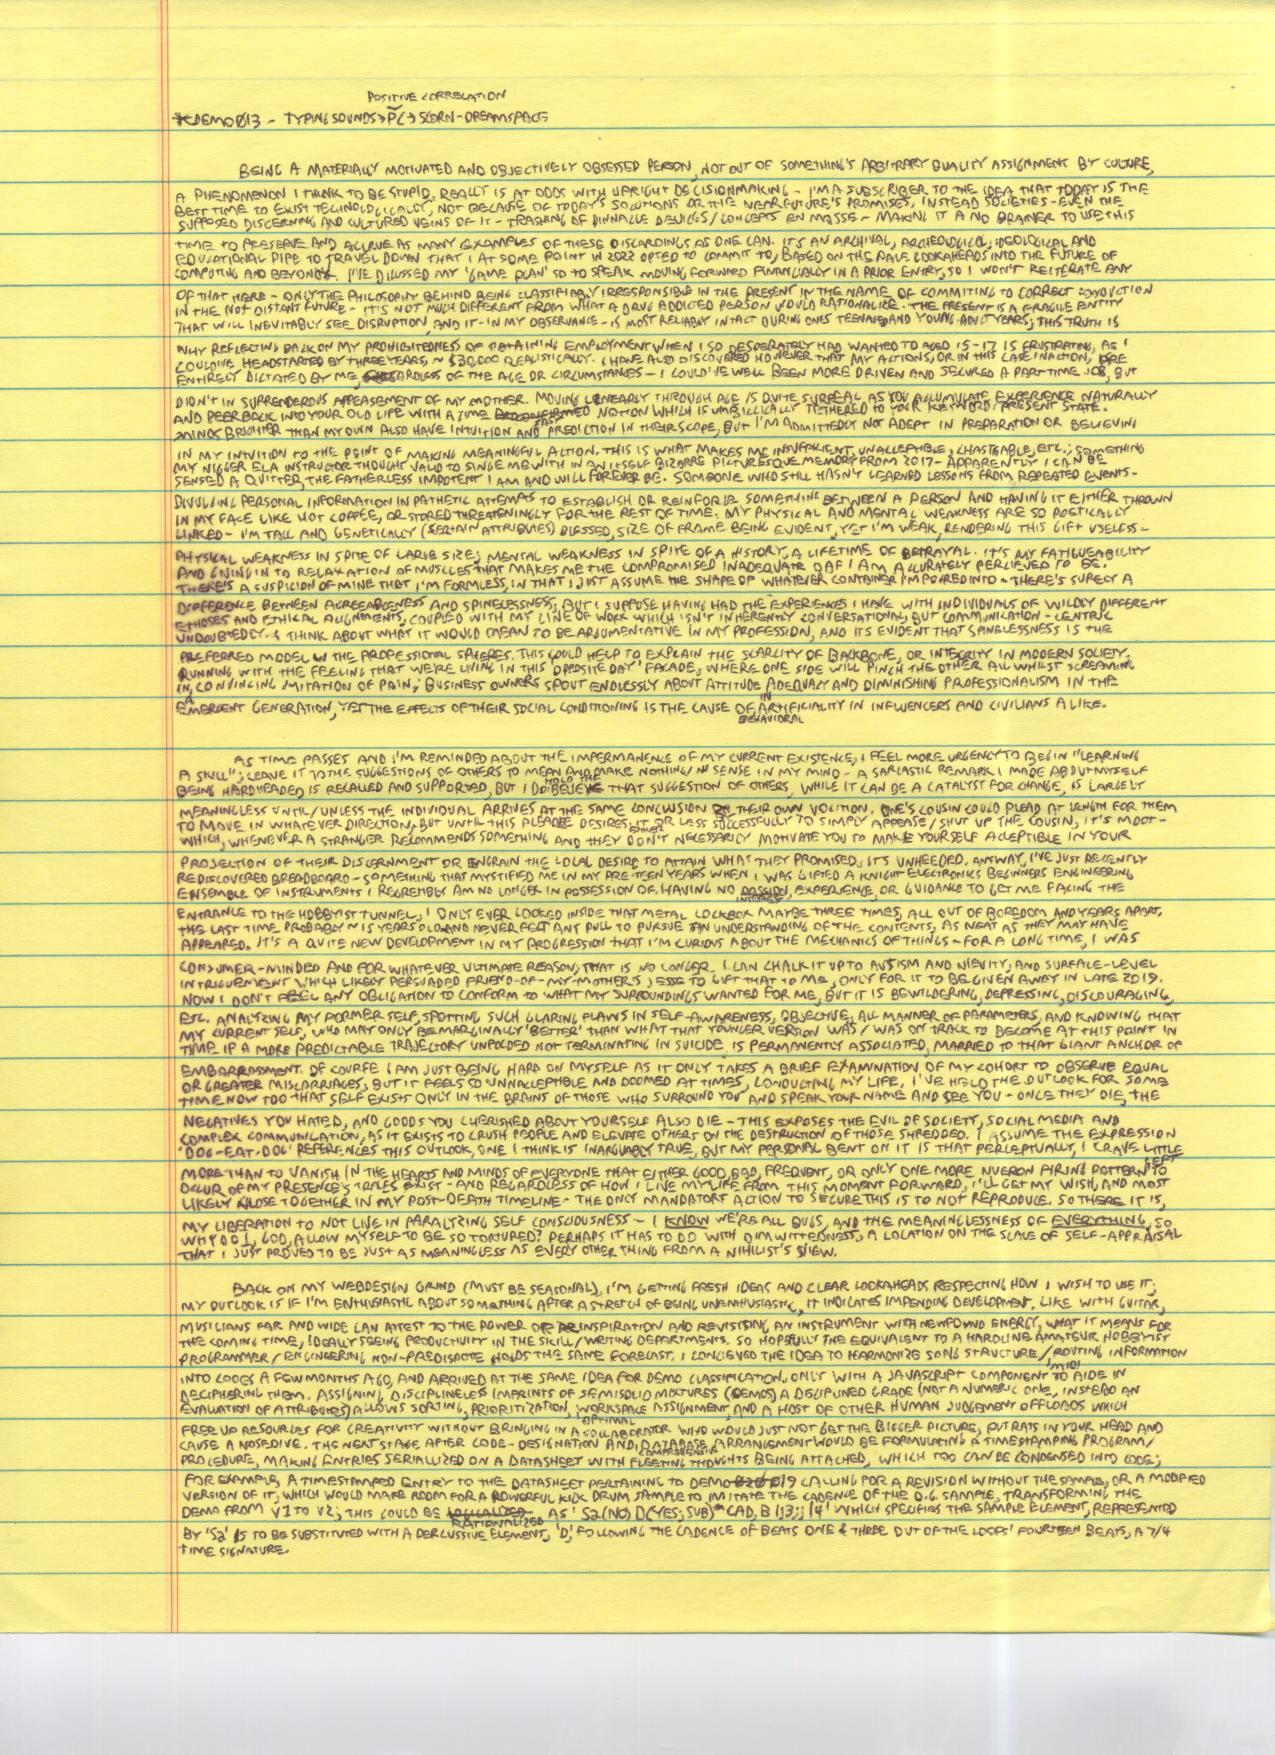 POSITIVE CORRELATION
*DEMO013 - TYPING SOUNDS → P(→ SCORN - DREAMSPACE
BEING A MATERIALLY MOTIVATED AND OBJECTIVELY OBSESSED PERSON, NOT OUT OF SOMETHING'S ARBITRARY QUALITY ASSIGNMENT BY CULTURE,
A PHENOMENON I THINK TO BE STUPID, REALLY IS AT ODDS WITH UPRIGHT DECISIONMAKING - I'M A SUBSCRIBER TO THE IDEA THAT TODAY IS THE
BEST TIME TO EXIST TECHNOLOGICALLY, NOT BECAUSE OF TODAY'S SOLUTIONS OR THE NEAR FUTURE'S PROMISES, INSTEAD SOCIETIES - EVEN THE
SUPPOSED DISCERNING AND CULTURED VEINS OF IT - TRASHING OF PINNACLE DEVICES/CONCEPTS EN MASSE - MAKING IT A NO BRAINER TO USE THIS
TIME TO PRESERVE AND ACCRUE AS MANY EXAMPLES OF THESE DISCARDINGS AS ONE CAN. IT'S AN ARCHIVAL, ARCHEOLOGICAL, IDEOLOGICAL AND
EDUCATIONAL PIPE TO TRAVEL DOWN THAT I AT SOME POINT IN 2022 OPTED TO COMMIT TO, BASED ON THE PALE LOOKAHEADS INTO THE FUTURE OF
COMPUTING AND BEYOND. I'VE DICUSSED MY 'GAME PLAN' SO TO SPEAK MOVING FORWARD FINANCIALLY IN A PRIOR ENTRY, SO I WON'T REITERATE ANY
OF THAT HERE - ONLY THE PHILOSOPHY BEHIND BEING CLASSIFIABLY IRRESPONSIBLE IN THE PRESENT IN THE NAME OF COMMITING TO CORRECT CONVICTION
IN THE NOT DISTANT FUTURE - IT'S NOT MUCH DIFFERENT FROM WHAT A DRUG ADDICTED PERSON WOULD RATIONALIZE. THE PRESENT IS A FRAGILE ENTITY
THAT WILL INEVITABLY SEE DISRUPTION, AND IT - IN MY OBSERVANCE - IS MOST RELIABLY INTACT DURING ONES TEENAGE AND YOUNG ADULT YEARS; THIS TRUTH IS
WHY REFLECTING BACK ON MY PROHIBITEDNESS OF OBTAINING EMPLOYMENT WHEN I SO DESPERATELY HAD WANTED TO AGED 15-17 IS FRUSTRATING, AS I
COULD'VE HEADSTARTED BY THREE YEARS, ~ $30,000 REALISTICALLY. I HAVE ALSO DISCOVERED HOWEVER THAT MY ACTIONS, OR IN THIS CASE INACTION, WERE
ENTIRELY DICTATED BY ME, REGARDLESS OF THE AGE OR CIRCUMSTANCES - I COULD'VE WELL BEEN MORE DRIVEN AND SECURED A PART-TIME JOB, BUT
DIDN'T IN SURRENDEROUS APPEASEMENT OF MY MOTHER. MOVING LINEARLY THROUGH AGE IS QUITE SURREAL AS YOU ACCUMULATE EXPERIENCE NATURALLY
AND PEER BACK INTO YOUR OLD LIFE WITH A TIME NOTION WHICH IS UMBILLICALLY TETHERED TO YOUR KEYWORD/PRESENT STATE.
MINDS BRIGHTER THAN MY OWN ALSO HAVE INTUITION AND PREDICTION IN THEIR SCOPE, BUT I'M ADMITTEDLY NOT ADEPT IN PREPARATION OR BELIEVING
IN MY INTUITION TO THE POINT OF MAKING MEANINGFUL ACTION. THIS IS WHAT MAKES ME INSUFFICIENT, UNACCEPTABLE, CHASTEABLE, ETC.; SOMETHING
MY NIGGER ELA INSTRUCTOR THOUGHT VALID TO SINGE ME WITH IN AN ITSELF BIZARRE PICTURESQUE MEMORY FROM 2017 - APPARENTLY I CAN BE
SENSED A QUITTER, THE FATHERLESS IMPOTENT I AM AND WILL FOREVER BE. SOMEONE WHO STILL HASN'T LEARNED LESSONS FROM REPEATED EVENTS -
DIVULGING PERSONAL INFORMATION IN PATHETIC ATTEMPTS TO ESTABLISH OR REINFORCE SOMETHING BETWEEN A PERSON AND HAVING IT EITHER THROWN
IN MY FACE LIKE HOT COFFEE, OR STORED THREATENINGLY FOR THE REST OF TIME. MY PHYSICAL AND MENTAL WEAKNESS ARE SO POETICALLY
LINKED - I'M TALL AND GENETICALLY (CERTAIN ATTRIBUTES) BLESSED, SIZE OF FRAME BEING EVIDENT, YET I'M WEAK, RENDERING THIS GIFT USELESS -
PHYSICAL WEAKNESS IN SPITE OF LARGE SIZE; MENTAL WEAKNESS IN SPITE OF A HISTORY, A LIFETIME OF BETRAYAL. IT'S MY FATIGUEABILITY
AND GIVING IN TO RELAXATION OF MUSCLES THAT MAKES ME THE COMPROMISED INADEQUATE OAF I AM ACCURATELY PERCIEVED TO BE.
THERE'S A SUSPICION OF MINE THAT I'M FORMLESS, IN THAT I JUST ASSUME THE SHAPE OF WHATEVER CONTAINER I'M POURED INTO - THERE'S SURELY A
DIFFERENCE BETWEEN AGREEABLENESS AND SPINELESSNESS, BUT I SUPPOSE HAVING HAD THE EXPERIENCES I HAVE WITH INDIVIDUALS OF WILDLY DIFFERENT
ETHOSES AND ETHICAL ALIGNMENTS, COUPLED WITH MY LINE OF WORK WHICH ISN'T INHERENTLY CONVERSATIONAL, BUT COMMUNICATION-CENTRIC
UNDOUBTEDLY. I THINK ABOUT WHAT IT WOULD MEAN TO BE ARGUMENTATIVE IN MY PROFESSION, AND IT'S EVIDENT THAT SPINELESSNESS IS THE
PREFERRED MODEL IN THE PROFESSIONAL SPHERES. THIS COULD HELP TO EXPLAIN THE SCARCITY OF BACKBONE, OR INTEGRITY IN MODERN SOCIETY.
RUNNING WITH THE FEELING THAT WE'RE LIVING IN THIS 'OPPOSITE DAY' FACADE, WHERE ONE SIDE WILL PINCH THE OTHER ALL WHILST SCREAMING
IN CONVINCING IMITATION OF PAIN; BUSINESS OWNERS SPOUT ENDLESSLY ABOUT ATTITUDE ADEQUACY AND DIMINISHING PROFESSIONALISM IN THE
EMERGENT GENERATION, YET THE EFFECTS OF THEIR SOCIAL CONDITIONING IS THE CAUSE OF BEHAVIORAL ARTIFICIALITY IN INFLUENCERS AND CIVILIANS ALIKE.
AS TIME PASSES AND I'M REMINDED ABOUT THE IMPERMANENCE OF MY CURRENT EXISTENCE, I FEEL MORE URGENCY TO BEGIN "LEARNING
A SKILL"; LEAVE IT TO THE SUGGESTIONS OF OTHERS TO MEAN AND MAKE NOTHING/NO SENSE IN MY MIND - A SARCASTIC REMARK I MADE ABOUT MYSELF
BEING HARDHEADED IS RECALLED AND SUPPORTED, BUT I DO HOLD THE BELIEVE THAT SUGGESTION OF OTHERS, WHILE IT CAN BE A CATALYST FOR CHANGE, IS LARGELY
MEANINGLESS UNTIL/UNLESS THE INDIVIDUAL ARRIVES AT THE SAME CONCLUSION ON THEIR OWN VOLITION. ONE'S COUSIN COULD PLEAD AT LENGTH FOR THEM
TO MOVE IN WHATEVER DIRECTION, BUT UNTIL THIS PLEADEE DESIRES IT OR LESS SUCCESSFULLY TO SIMPLY APPEASE/SHUT UP THE COUSIN, IT'S MOOT -
WHICH, WHENEVER A STRANGER RECOMMENDS SOMETHING AND THEY EITHER DON'T NECESSARILY MOTIVATE YOU TO MAKE YOURSELF ACCEPTIBLE IN YOUR
PROJECTION OF THEIR DISCERNMENT OR ENGRAIN THE LOCAL DESIRE TO ATTAIN WHAT THEY PROMISED, IT'S UNHEEDED. ANYWAY, I'VE JUST RECENTLY
REDISCOVERED BREADBOARD - SOMETHING THAT MYSTIFIED ME IN MY PRE-TEEN YEARS WHEN I WAS GIFTED A KNIGHT ELECTRONICS BEGINNERS ENGINEERING
ENSEMBLE OF INSTRUMENTS I REGREBLY AM NO LONGER IN POSSESSION OF. HAVING NO INTEREST, EXPERIENCE, OR GUIDANCE TO GET ME FACING THE
ENTRANCE TO THE HOBBYIST TUNNEL, I ONLY EVER LOOKED INSIDE THAT METAL LOCKBOX MAYBE THREE TIMES, ALL OUT OF BOREDOM AND YEARS APART,
THE LAST TIME PROBABLY ~15 YEARS OLD, AND NEVER FELT ANY PULL TO PURSUE AN UNDERSTANDING OF THE CONTENTS, AS NEAT AS THEY MAY HAVE
APPEARED. IT'S A QUITE NEW DEVELOPMENT IN MY PROGRESSION THAT I'M CURIOUS ABOUT THE MECHANICS OF THINGS - FOR A LONG TIME, I WAS
CONSUMER-MINDED AND FOR WHATEVER ULTIMATE REASON, THAT IS NO LONGER. I CAN CHALK IT UP TO AUTISM AND NIEVITY, AND SURFACE-LEVEL
INTRIGUEMENT WHICH LIKELY PERSUADED FRIEND-OF-MY-MOTHER'S JESSE TO GIFT THAT TO ME, ONLY FOR IT TO BE GIVEN AWAY IN LATE 2019.
NOW I DON'T FEEL ANY OBLIGATION TO CONFORM TO WHAT MY SURROUNDINGS WANTED FOR ME, BUT IT IS BEWILDERING, DEPRESSING, DISCOURAGING,
ETC. ANALYZING MY FORMER SELF, SPOTTING SUCH GLARING FLAWS IN SELF-AWARENESS, OBJECTIVE, ALL MANNER OF PARAMETERS, AND KNOWING THAT
MY CURRENT SELF, WHO MAY ONLY BE MARGINALLY 'BETTER' THAN WHAT THAT YOUNGER VERSION WAS/WAS ON TRACK TO BECOME AT THIS POINT IN
TIME IF A MORE PREDICTABLE TRAJECTORY UNFOLDED NOT TERMINATING IN SUICIDE IS PERMANENTLY ASSOCIATED, MARRIED TO THAT GIANT ANCHOR OF
EMBARRASSMENT. OF COURSE I AM JUST BEING HARD ON MYSELF AS IT ONLY TAKES A BRIEF EXAMINATION OF MY COHORT TO OBSERVE EQUAL
OR GREATER MISCARRIAGES, BUT IT FEELS SO UNACCEPTIBLE AND DOOMED AT TIMES, CONDUCTING MY LIFE. I'VE HELD THE OUTLOOK FOR SOME
TIME NOW TOO THAT SELF EXISTS ONLY IN THE BRAINS OF THOSE WHO SURROUND YOU AND SPEAK YOUR NAME AND SEE YOU - ONCE THEY DIE, THE
NEGATIVES YOU HATED, AND GOODS YOU CHERISHED ABOUT YOURSELF ALSO DIE - THIS EXPOSES THE EVIL OF SOCIETY, SOCIAL MEDIA AND
COMPLEX COMMUNICATION, AS IT EXISTS TO CRUSH PEOPLE AND ELEVATE OTHERS ON THE DESTRUCTION OF THOSE SHREDDED. I ASSUME THE EXPRESSION
'DOG-EAT-DOG' REFERENCES THIS OUTLOOK, ONE I THINK IS INARGUABLY TRUE, BUT MY PERSONAL BENT ON IT IS THAT PERCEPTUALLY, I CRAVE LITTLE
MORE THAN TO VANISH IN THE HEARTS AND MINDS OF EVERYONE THAT EITHER GOOD, BAD, FREQUENT, OR ONLY ONE MORE NUERON FIRING PATTERN LEFT TO
OCCUR OF MY PRESENCE'S TOLLS EXIST - AND REGARDLESS OF HOW I LIVE MY LIFE FROM THIS MOMENT FORWARD, I'LL GET MY WISH, AND MOST
LIKELY CLOSE TOGETHER IN MY POST-DEATH TIMELINE - THE ONLY MANDATORY ACTION TO SECURE THIS IS TO NOT REPRODUCE. SO THERE IT IS,
MY LIBERATION TO NOT LIVE IN PARALYZING SELF CONSCIOUSNESS - I KNOW WE'RE ALL BUGS, AND THE MEANINGLESSNESS OF EVERYTHING, SO
WHY DO I, GOD, ALLOW MYSELF TO BE SO TORTURED? PERHAPS IT HAS TO DO WITH DIMWITTEDNESS, A LOCATION ON THE SCALE OF SELF-APPRAISAL
THAT I JUST PROVED TO BE JUST AS MEANINGLESS AS EVERY OTHER THING FROM A NIHILIST'S VIEW.
BACK ON MY WEBDESIGN GRIND (MUST BE SEASONAL), I'M GETTING FRESH IDEAS AND CLEAR LOOKAHEADS RESPECTING HOW I WISH TO USE IT;
MY OUTLOOK IS IF I'M ENTHUSIASTIC ABOUT SOMETHING AFTER A STRETCH OF BEING UNENTHUSIASTIC, IT INDICATES IMPENDING DEVELOPMENT. LIKE WITH GUITAR,
MUSICIANS FAR AND WIDE CAN ATTEST TO THE POWER OF REINSPIRATION AND REVISITING AN INSTRUMENT WITH NEWFOUND ENERGY, WHAT IT MEANS FOR
THE COMING TIME, IDEALLY SEEING PRODUCTIVITY IN THE SKILL/WRITING DEPARTMENTS. SO HOPEFULLY THE EQUIVALENT TO A HARDLINE AMATEUR HOBBYIST
PROGRAMMER/ENGINEERING NON-PREDISPOTE HOLDS THE SAME FORECAST. I CONCIEVED THE IDEA TO HARMONIZE SONG STRUCTURE/ROUTING INFORMATION
INTO CODES A FEW MONTHS AGO, AND ARRIVED AT THE SAME IDEA FOR DEMO CLASSIFICATION, ONLY WITH A JAVASCRIPT COMPONENT TO AIDE IN
DECIPHERING THEM. ASSIGNING DISCIPLINELESS IMPRINTS OF SEMISOLID MIXTURES (DEMOS) A DISCIPLINED GRADE (NOT A NUMERIC ONE, INSTEAD AN
EVALUATION OF ATTRIBUTES) ALLOWS SORTING, PRIORITIZATION, WORKSPACE ASSIGNMENT, AND A HOST OF OTHER HUMAN JUDGEMENT OFFLOADS WHICH
FREE UP RESOURCES FOR CREATIVITY WITHOUT BRINGING IN A OPTIMAL COLLABORATOR WHO WOULD JUST NOT GET THE BIGGER PICTURE, PUT RATS IN YOUR HEAD AND
CAUSE A NOSEDIVE. THE NEXT STAGE AFTER CODE-DESIGNATION AND DATABASE ARRANGEMENT WOULD BE FORMULATING A TIMESTAMPING PROGRAM/
PROCEDURE, MAKING ENTRIES SERIALIZED ON A DATASHEET WITH COMPREHENSIVE FLEETING THOUGHTS BEING ATTACHED, WHICH TOO CAN BE CONDENSED INTO CODE;
FOR EXAMPLE, A TIMESTAMPED ENTRY TO THE DATASHEET PERTAINING TO DEMO 019 CALLING FOR A REVISION WITHOUT THE SAMPLE, OR A MODIFIED
VERSION OF IT, WHICH WOULD MAKE ROOM FOR A POWERFUL KICK DRUM SAMPLE TO IMITATE THE CADENCE OF THE O.G. SAMPLE, TRANSFORMING THE
DEMO FROM V1 TO V2; THIS COULD BE RATIONALIZED AS 'S2(NO) D(YES;SUB)*CAD, B 1;3;;14' WHICH SPECIFIES THE SAMPLE ELEMENT, REPRESENTED
BY 'S2' IS TO BE SUBSTITUTED WITH A PERCUSSIVE ELEMENT, 'D', FOLLOWING THE CADENCE OF BEATS ONE & THREE OUT OF THE LOOPS' FOURTEEN BEATS, A 7/4
TIME SIGNATURE.